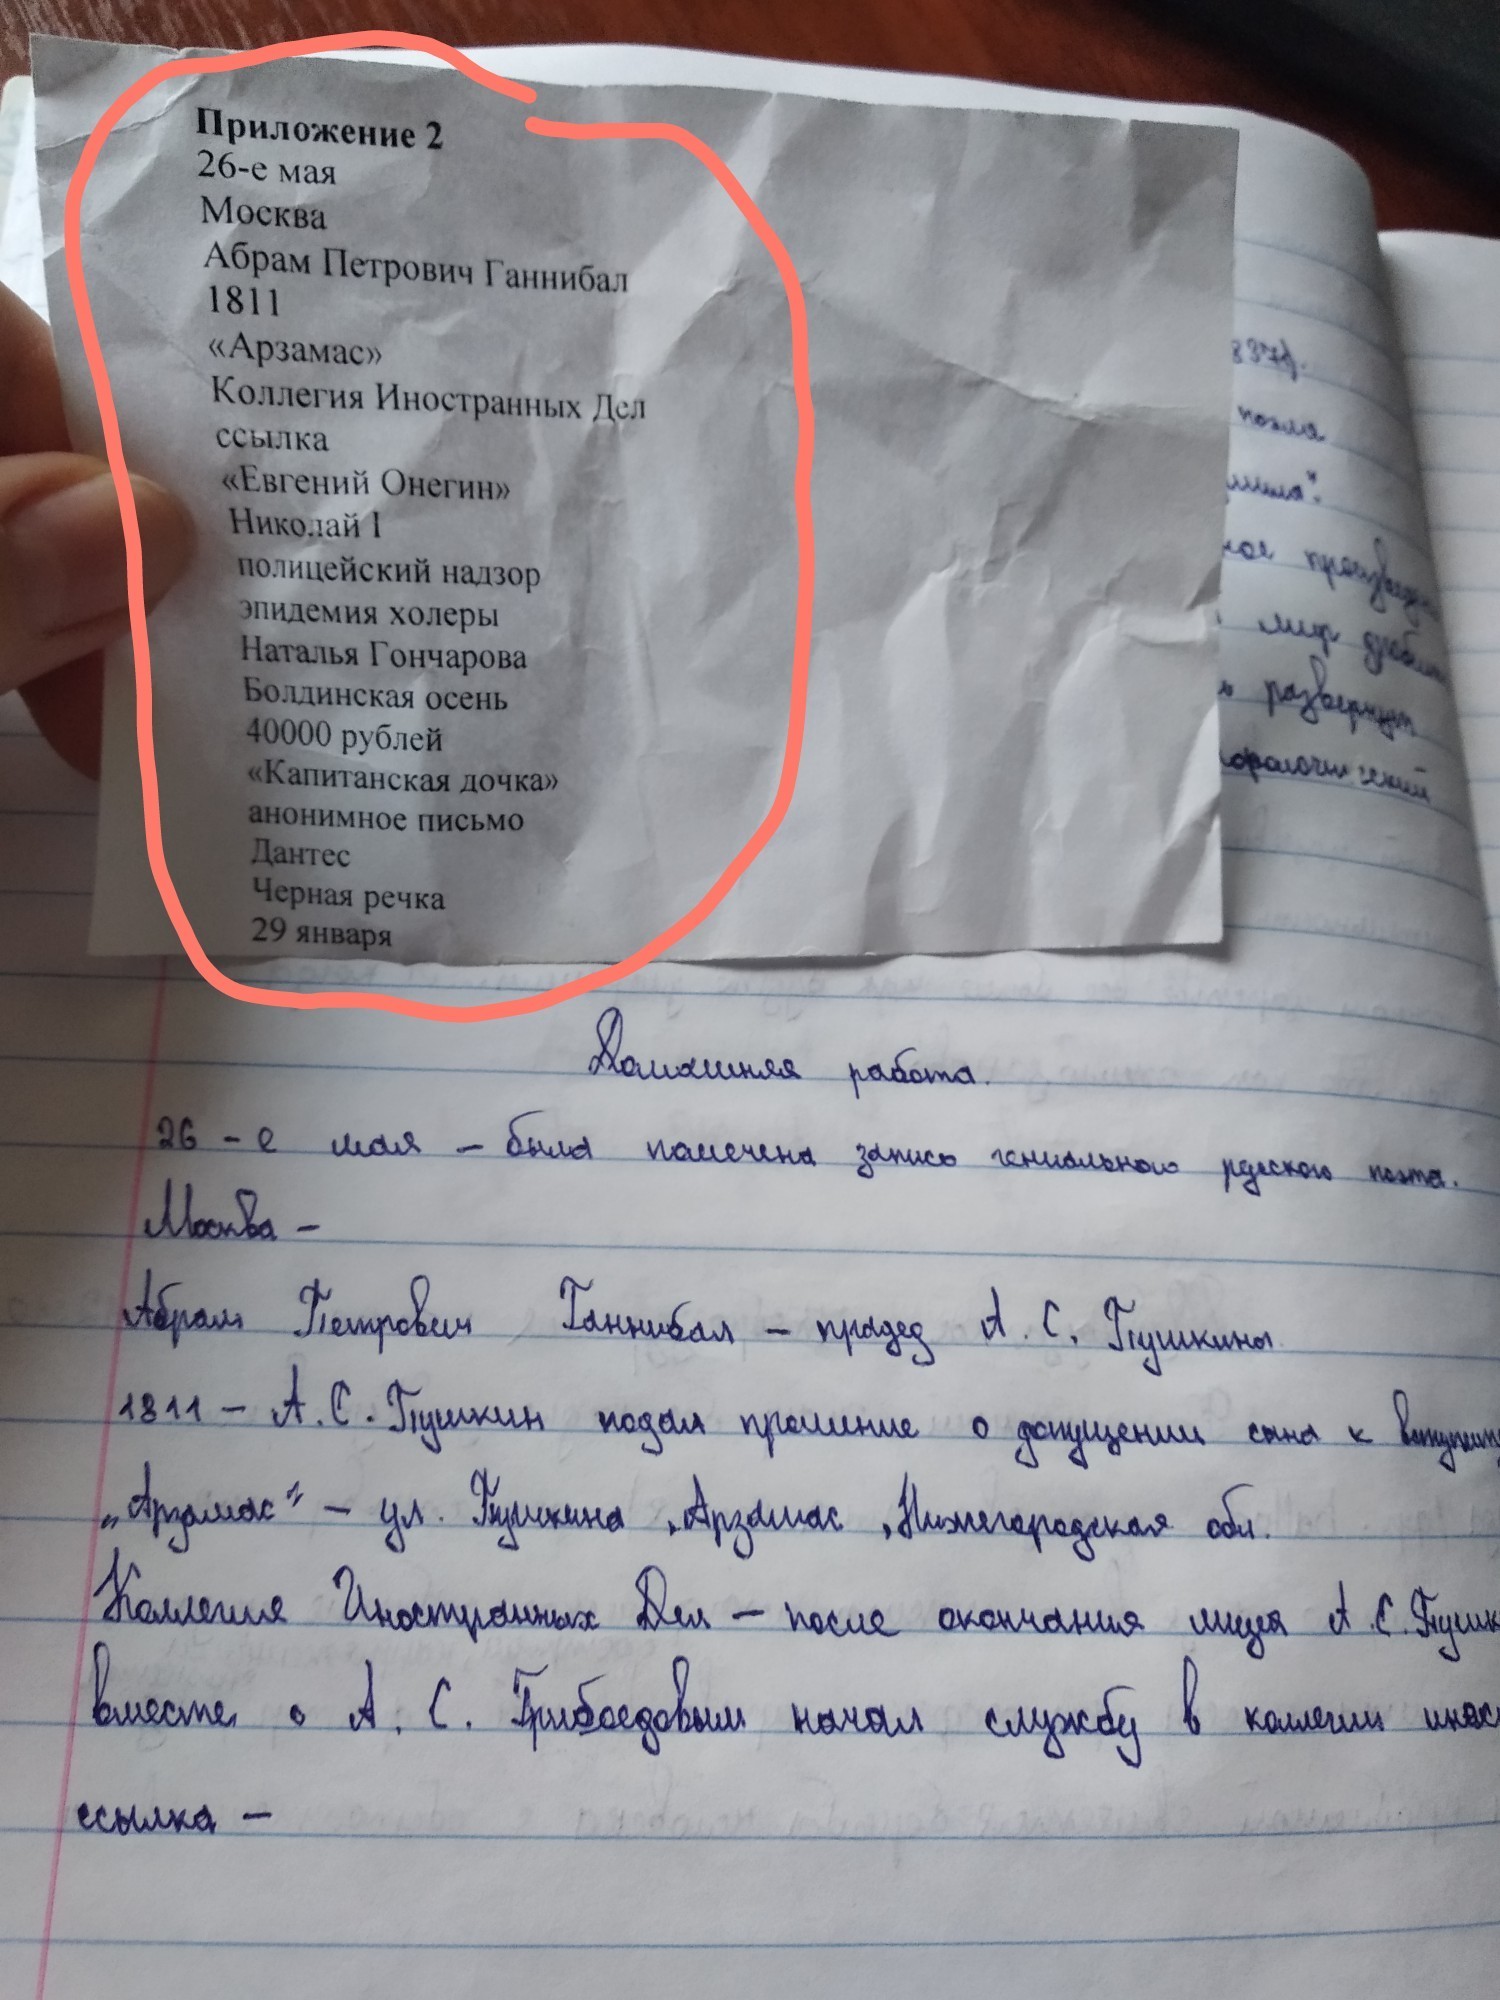 Приложение 2
26-е мая
Москва
Абрам Петрович Ганнибал
1811
«Арзамас»
Коллегия Иностранных Дел
ссылка
«Евгений Онегин»
Николай I
полицейский надзор
эпидемия холеры
Наталья Гончарова
Болдинская осень
40000 рублей
«Капитанская дочка»
анонимное письмо
Дантес
Черная речка
29 января
837г.
поэма
произведе
мир
развернут
Домашняя работа.
26-е мая – была помечена запись гениального русского поэта.
Москва –
Абрам Петрович Ганнибал – прадед А. С. Пушкина.
1811 – А. С. Пушкин подал прошение о допущении сына к вступит
„Арзамас" – ул. Пушкина, Арзамас, Нижегородская обл.
Коллегия Иностранных Дел – после окончания лицея А. С. Пушк
вместе с А. С. Грибоедовым начал службу в коллегии инос
ссылка –